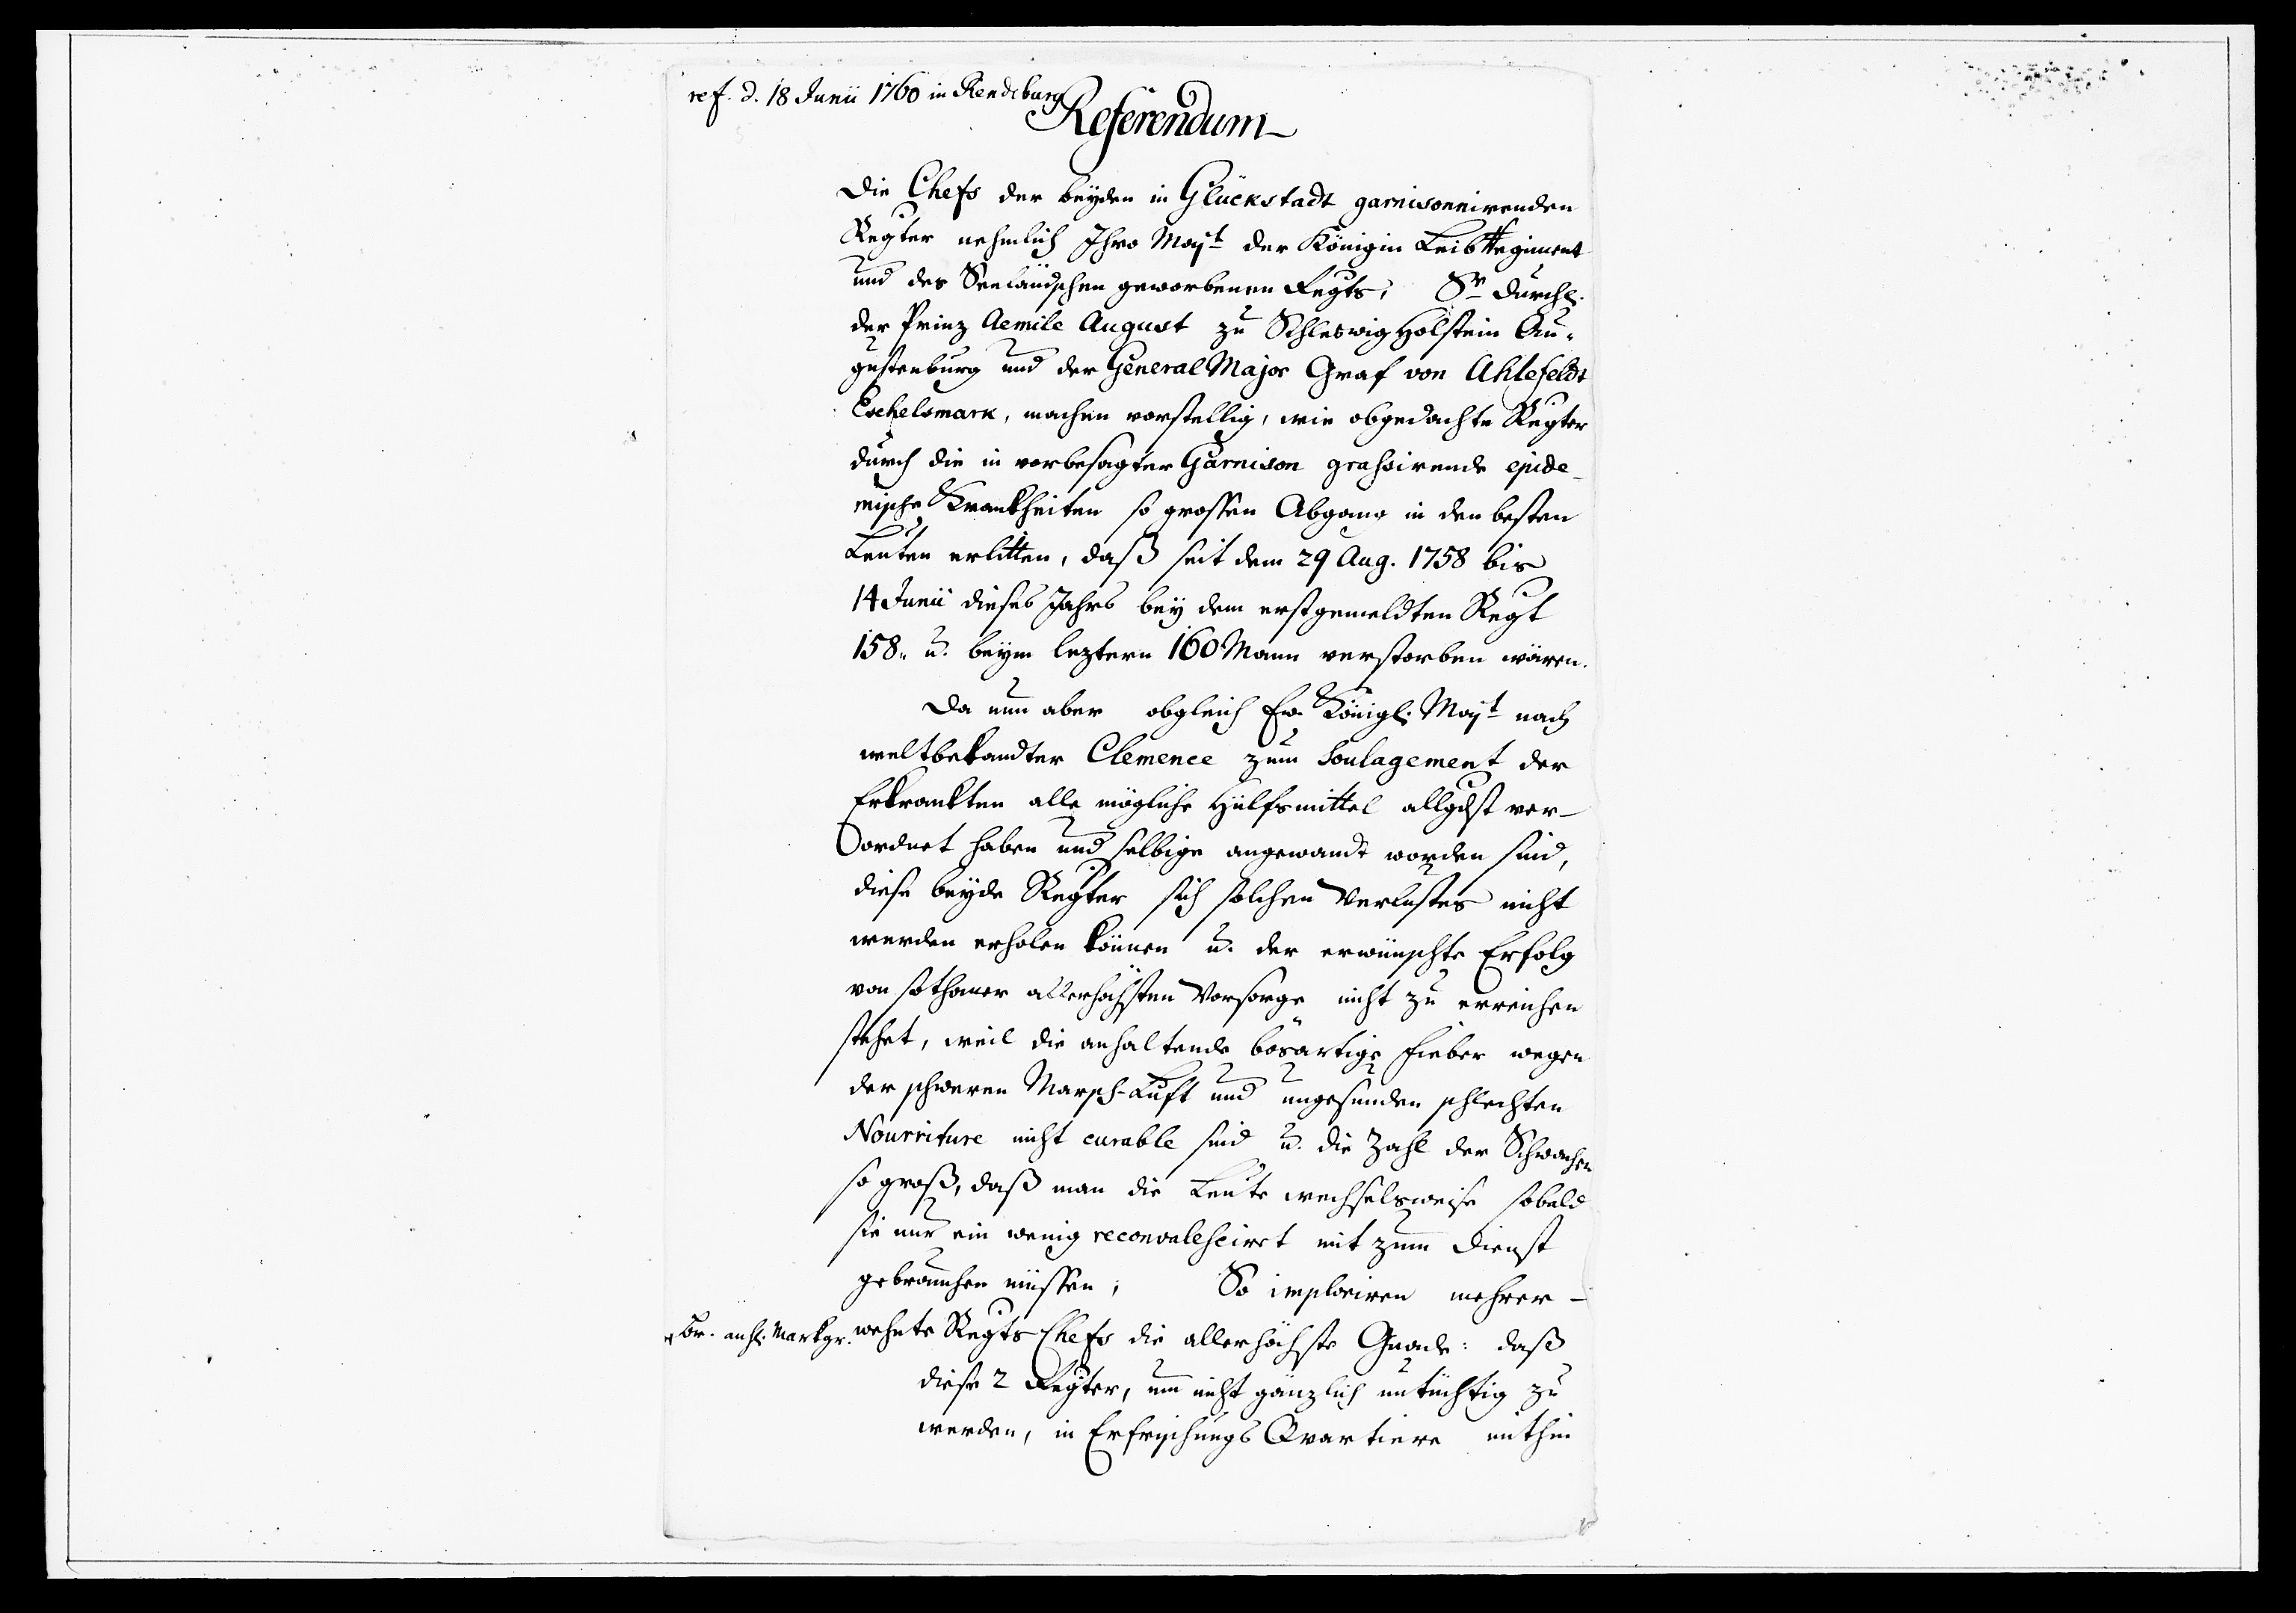 ref. d. 18 Junii 1760 in Rendsburg
Referendum
Die Chefs der beyden in Glückstadt garnisonnirenden
Regter nehmlich Ihro Mayt der Königin Leib Regiment
und des Seeländschen geworbenen Regts, Sr Durchl.
der Prinz Aemile August zu Schleswig Holstein Au-
gustenburg und der General Major Graf von Ahlefeldt
Eschelsmark, machen vorstellig, wie obgedachte Regter
durch die in vorbesagter Garnison grassirende epide-
mische Krankheiten so grossen Abgang in den besten
Leuten erlitten, daß seit dem 29 Aug. 1758 bis
14 Junii dieses Jahrs bey dem erstgemeldten Regt
158. u. beym leztern 160 Mann verstorben wären.
Da nun aber obgleich Ew. Königl. Mayt nach
weltbekandter Clemence zum Soulagement der
Erkrankten alle mögliche Hülfsmittel allgdst ver-
ordnet haben und selbige angewandt worden sind,
diese beyde Regter sich solchen Verlustes nicht
werden erholen können u. der erwünschte Erfolg
von sothaner allerhöchsten Vorsorge nicht zu erreichen
stehet, weil die anhaltende bösartige Fieber wegen
der schweren Marsch-Luft und ungesunden schlechten
Nourriture nicht curable sind u. die Zahl der Schwachen
so groß, daß man die Leute wechselsweise sobald
sie nur ein wenig reconvalescirt mit zum Dienst
gebrauchen müssen; So imploriren mehrer-
wehnte Regts Chefs die allerhöchste Gnade: daß
diese 2 Regter, um nicht gänzlich untüchtig zu
werden, in Erfrischungs Quartiere mithin